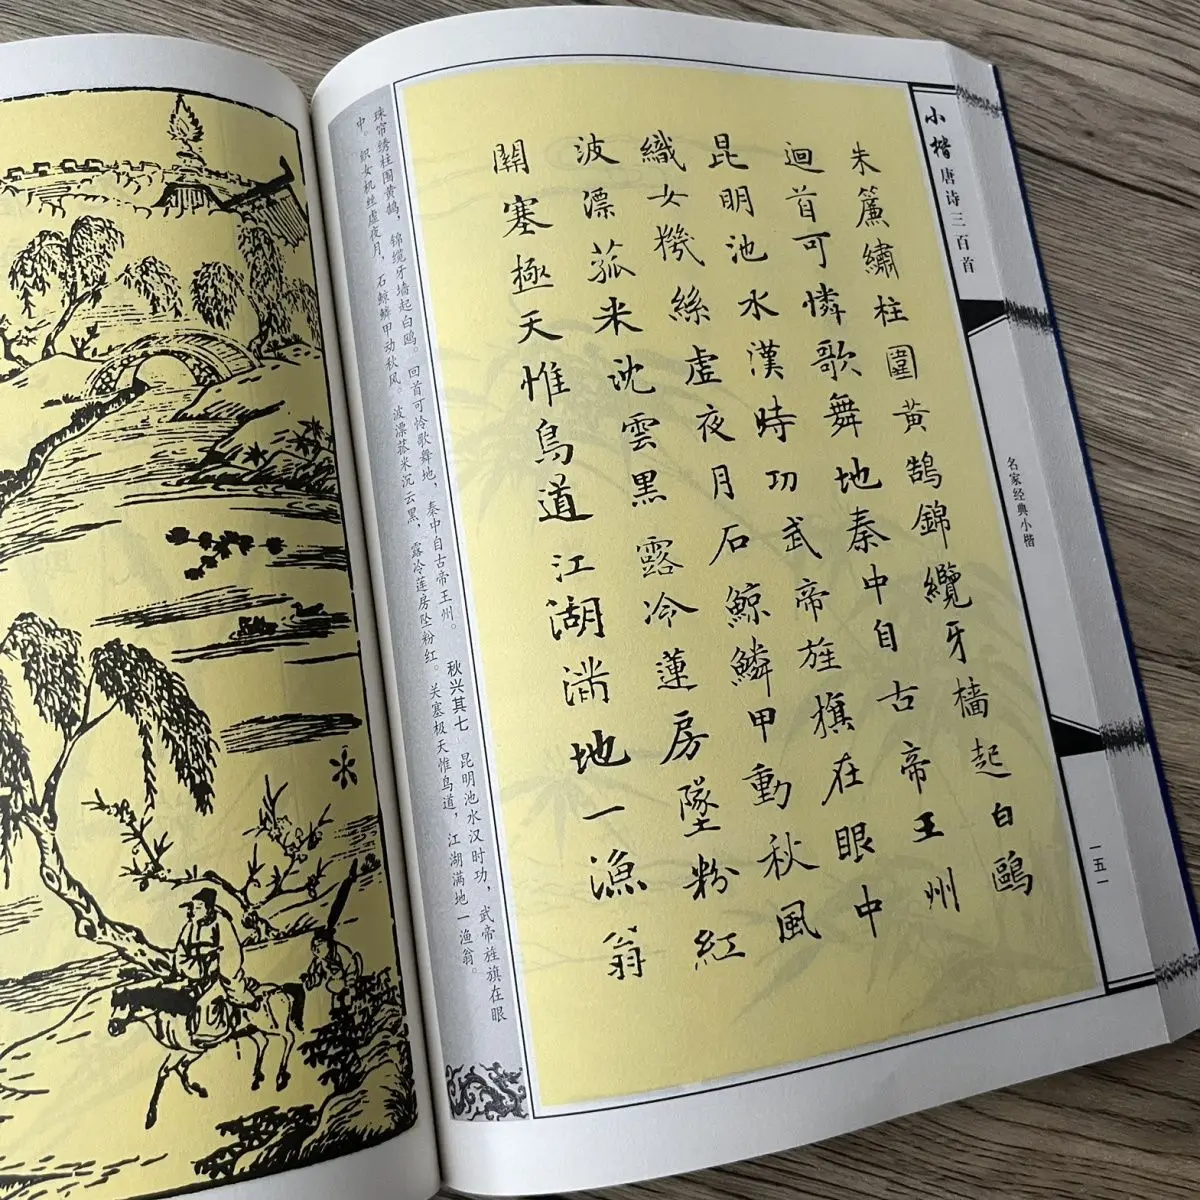 小楷唐诗三百首
名家经典小楷
一五一
朱簾繡柱圍黃鵠錦纜牙檣起白鷗
迴首可憐歌舞地秦中自古帝王州
昆明池水漢時功武帝旌旗在眼中
織女機絲虛夜月石鯨鱗甲動秋風
波漂菰米沈雲黑露冷蓮房墜粉紅
關塞極天惟鳥道江湖滿地一漁翁
珠帘绣柱围黄鹄，锦缆牙墙起白鸥。回首可怜歌舞地，秦中自古帝王州。 秋兴其七 昆明池水汉时功，武帝旌旗在眼
中。织女机丝虚夜月，石鲸鳞甲动秋风。波漂菰米沉云黑，露冷莲房坠粉红。关塞极天惟鸟道，江湖满地一渔翁。